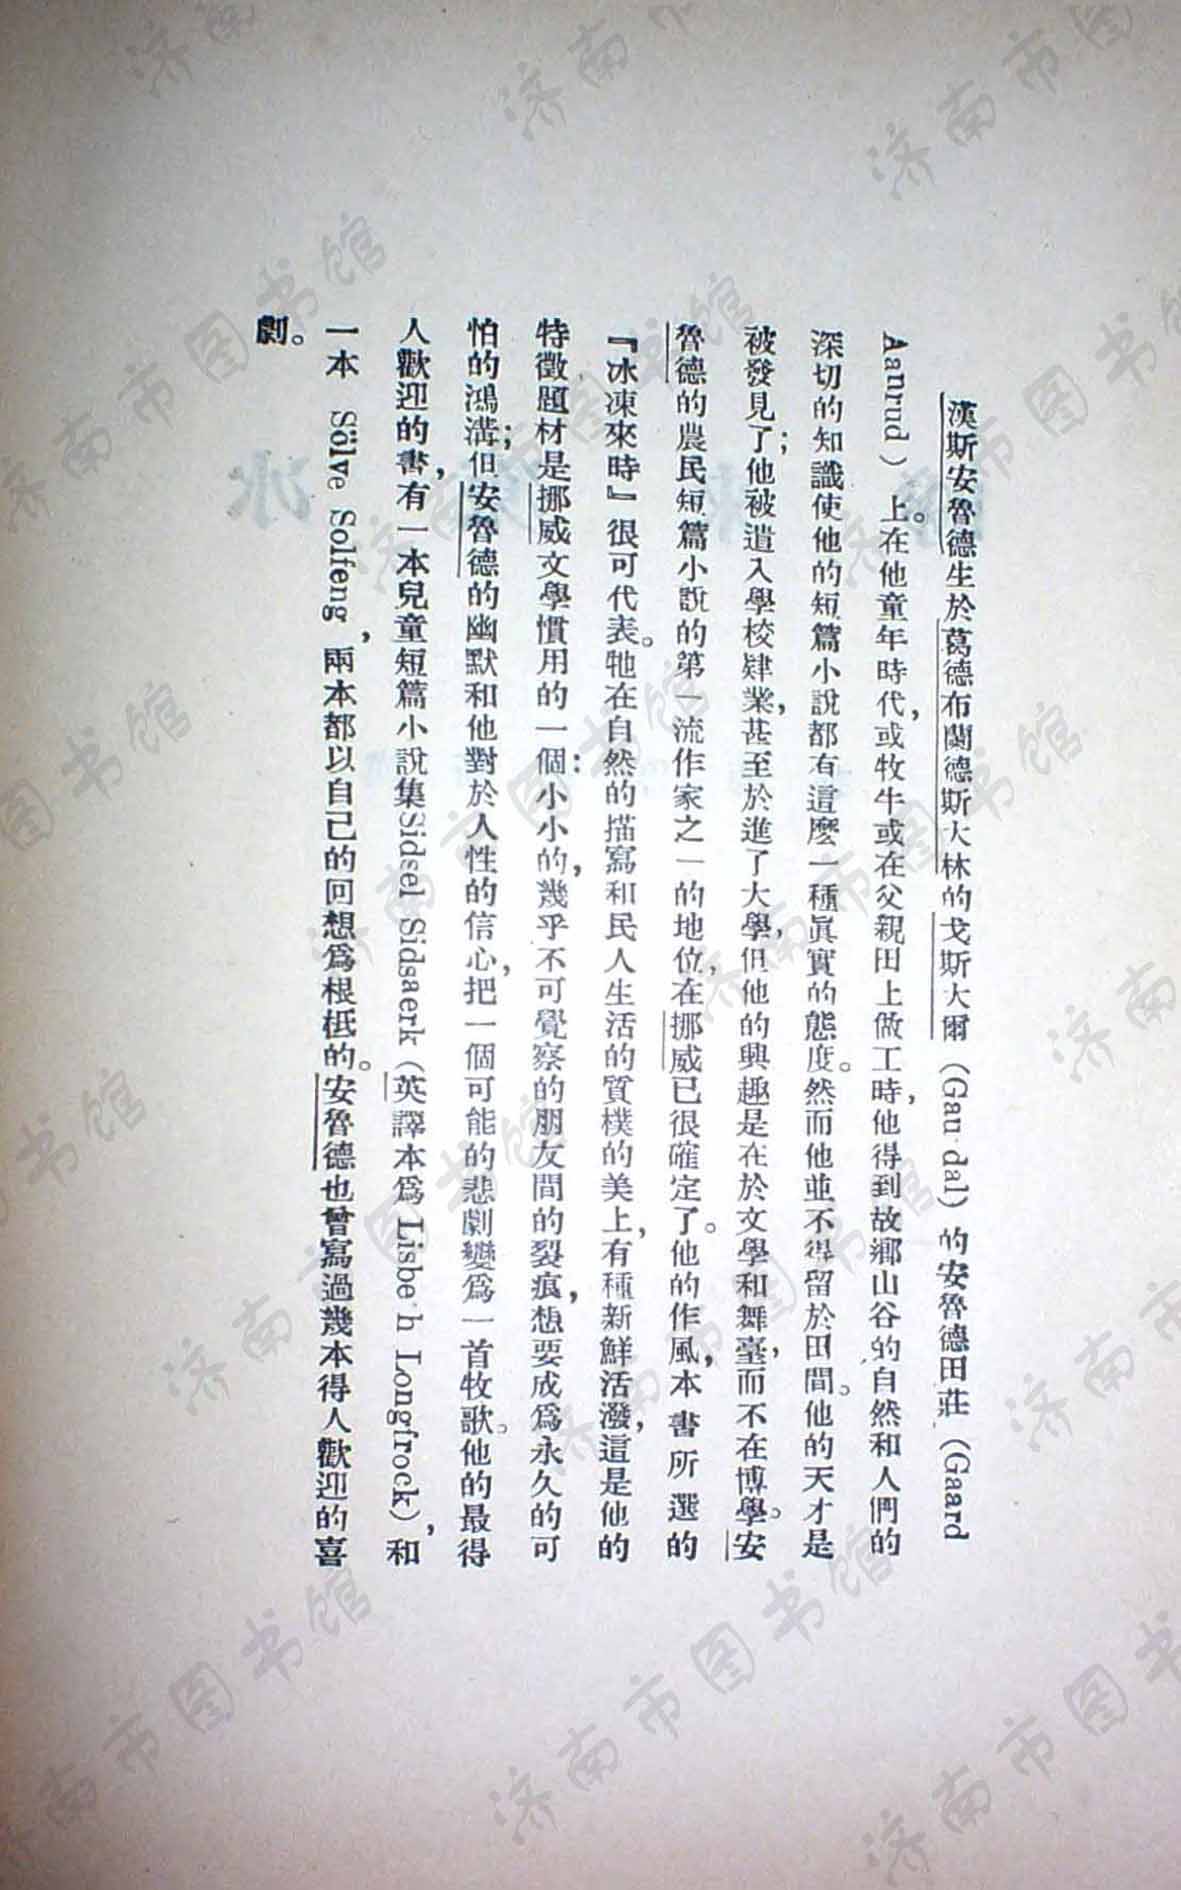 漢斯安魯德生於葛德布蘭德斯大林的戈斯大爾（Gau dal）的安魯德田莊（Gaard
Aanrud）上。在他童年時代，或牧牛或在父親田上做工時，他得到故鄉山谷的自然和人們的
深切的知識使他的短篇小說都有這麼一種眞實的態度。然而他並不得留於田間。他的天才是
被發見了；他被遣入學校肄業，甚至於進了大學，但他的興趣是在於文學和舞臺，而不在博學。安
魯德的農民短篇小說的第一流作家之一的地位，在挪威已很確定了。他的作風，本書所選的
『冰凍來時』很可代表。牠在自然的描寫和民人生活的質樸的美上，有種新鮮活潑，這是他的
特徵題材是挪威文學慣用的一個：小小的，幾乎不可覺察的朋友間的裂痕，想要成爲永久的可
怕的鴻溝；但安魯德的幽默和他對於人性的信心，把一個可能的悲劇變爲一首牧歌。他的最得
人歡迎的書，有一本兒童短篇小說集Sidsel Sidsaerk（英譯本爲 Lisbe h Longfrock），和
一本 Sölve Solfeng，兩本都以自己的回想爲根柢的。安魯德也曾寫過幾本得人歡迎的喜
劇。
济南市图书馆